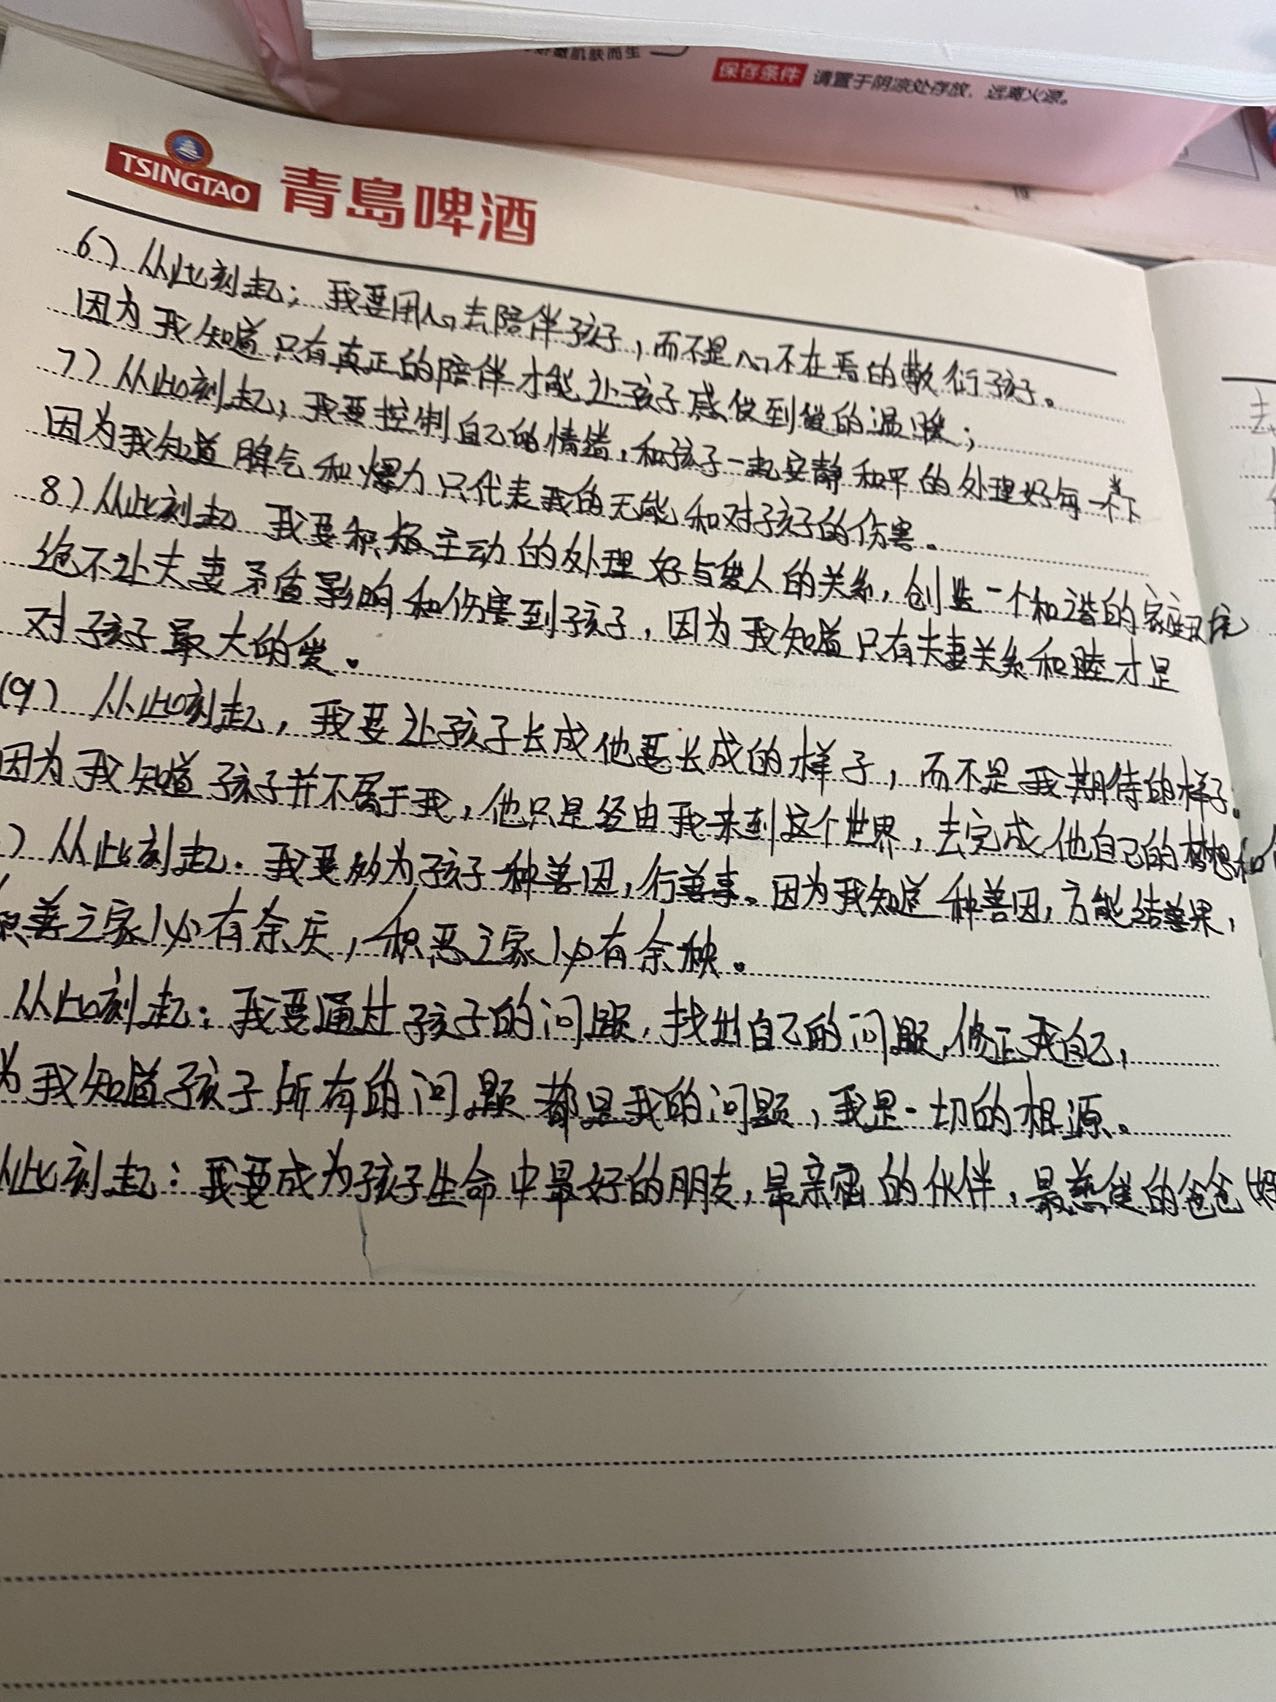 敏肌肤而生
保存条件 请置于阴凉处存放，远离火源。
TSINGTAO 青岛啤酒
6）从此刻起；我要用心去陪伴孩子，而不是心不在焉的敷衍孩子。
因为我知道只有真正的陪伴才能让孩子感受到爱的温暖；
7）从此刻起；我要控制自己的情绪，和孩子一起安静和平的处理好每一个当下
因为我知道脾气和爆力只代表我的无能和对孩子的伤害。
8）从此刻起 我要积极主动的处理好与爱人的关系，创造一个和谐的家庭环境
绝不让夫妻矛盾影响和伤害到孩子，因为我知道只有夫妻关系和睦才是
对孩子最大的爱。
(9）从此刻起，我要让孩子长成他要长成的样子，而不是我期待的样子。
因为我知道孩子并不属于我，他只是经由我来到这个世界，去完成他自己的梦想和
）从此刻起．我要为孩子种善因，行善事。因为我知道种善因，方能结善果，
积善之家必有余庆，积恶之家必有余殃。
从此刻起：我要通过孩子的问题，找出自己的问题，修正我自己，
为我知道孩子所有的问题都是我的问题，我是一切的根源。
从此刻起：我要成为孩子生命中最好的朋友，最亲密的伙伴，最慈爱的爸爸
去